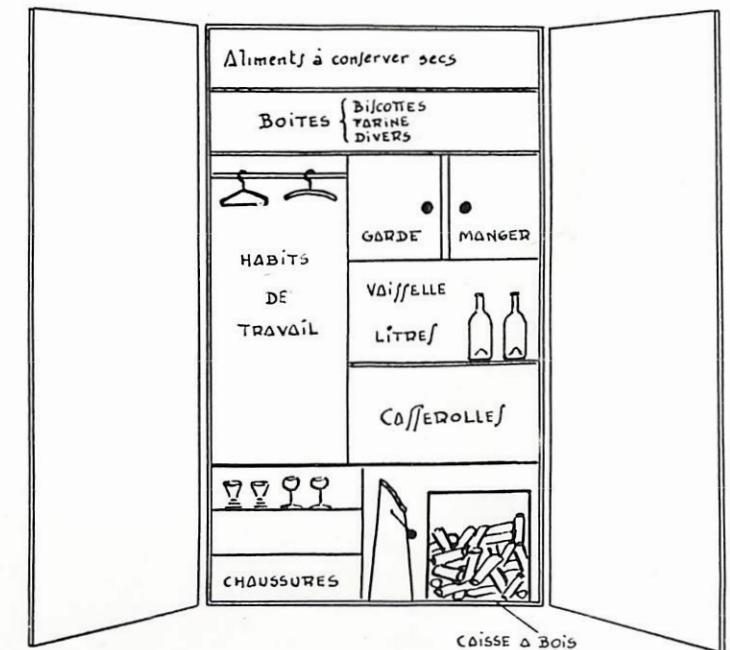 Aliments à conserver secs
BOITES { BISCOTTES
FARINE
DIVERS
GARDE MANGER
HABITS
DE
TRAVAIL
VAISSELLE
LITRES
CASSEROLLES
CHAUSSURES
CAISSE A BOIS